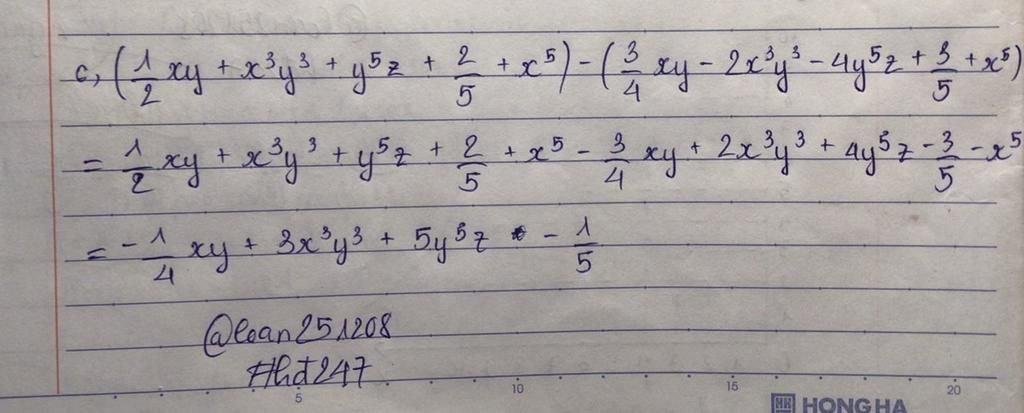 c, (1/2 xy + x³y³ + y⁵z + 2/5 + x⁵) - (3/4 xy - 2x³y³ - 4y⁵z + 3/5 + x⁵)
= 1/2 xy + x³y³ + y⁵z + 2/5 + x⁵ - 3/4 xy + 2x³y³ + 4y⁵z - 3/5 - x⁵
= -1/4 xy + 3x³y³ + 5y⁵z - 1/5
@loan251208
#hd247
5 10 15 20
HONG HA